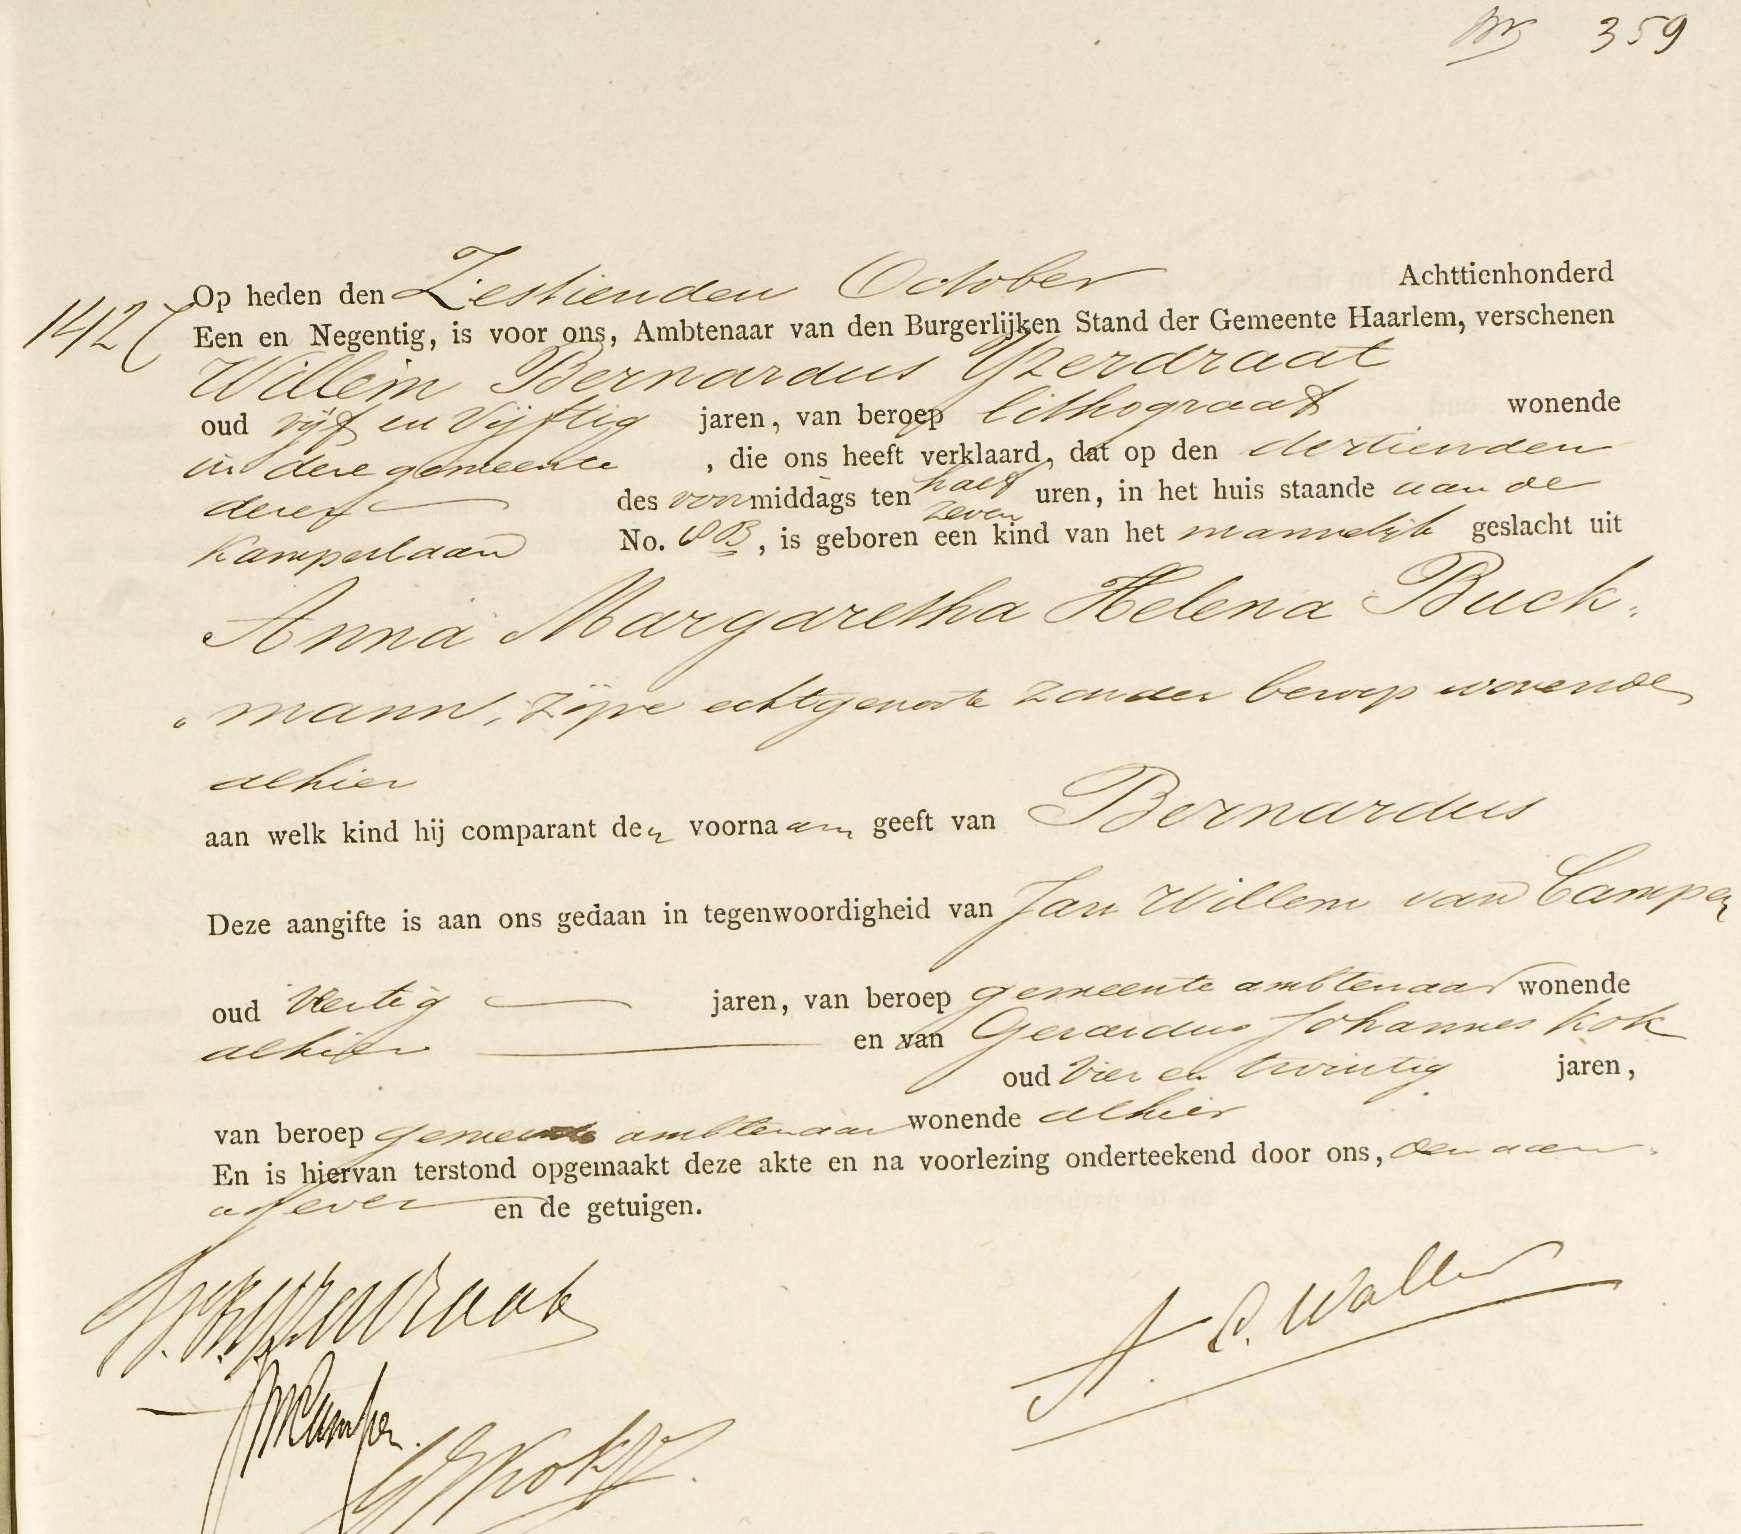 359
Op heden den Zestienden October Achttienhonderd
142
Een en Negentig, is voor ons, Ambtenaar van den Burgerlijken Stand der Gemeente Haarlem, verschenen
Willem Bernardus Yzerdraat
oud vijf en vijftig jaren, van beroep lithograaf wonende
in deze gemeente , die ons heeft verklaard, dat op den dertienden
dezer des voormiddags ten half zeven uren, in het huis staande aan de
Kamperlaan No. 8B, is geboren een kind van het mannelijk geslacht uit
Anna Margaretha Helena Buck-
mann, zijne echtgenoote zonder beroep wonende
alhier
aan welk kind hij comparant den voornaam geeft van Bernardus
Deze aangifte is aan ons gedaan in tegenwoordigheid van Jan Willem van Campen
oud Veertig jaren, van beroep gemeente ambtenaar wonende
alhier en van Gerardus Johannes Kok
oud Vier en twintig jaren,
van beroep gemeente ambtenaar wonende alhier
En is hiervan terstond opgemaakt deze akte en na voorlezing onderteekend door ons, den aan-
gever en de getuigen.
W. B. Yzerdraat
A. C. Waller
JWvCampen
GJKok